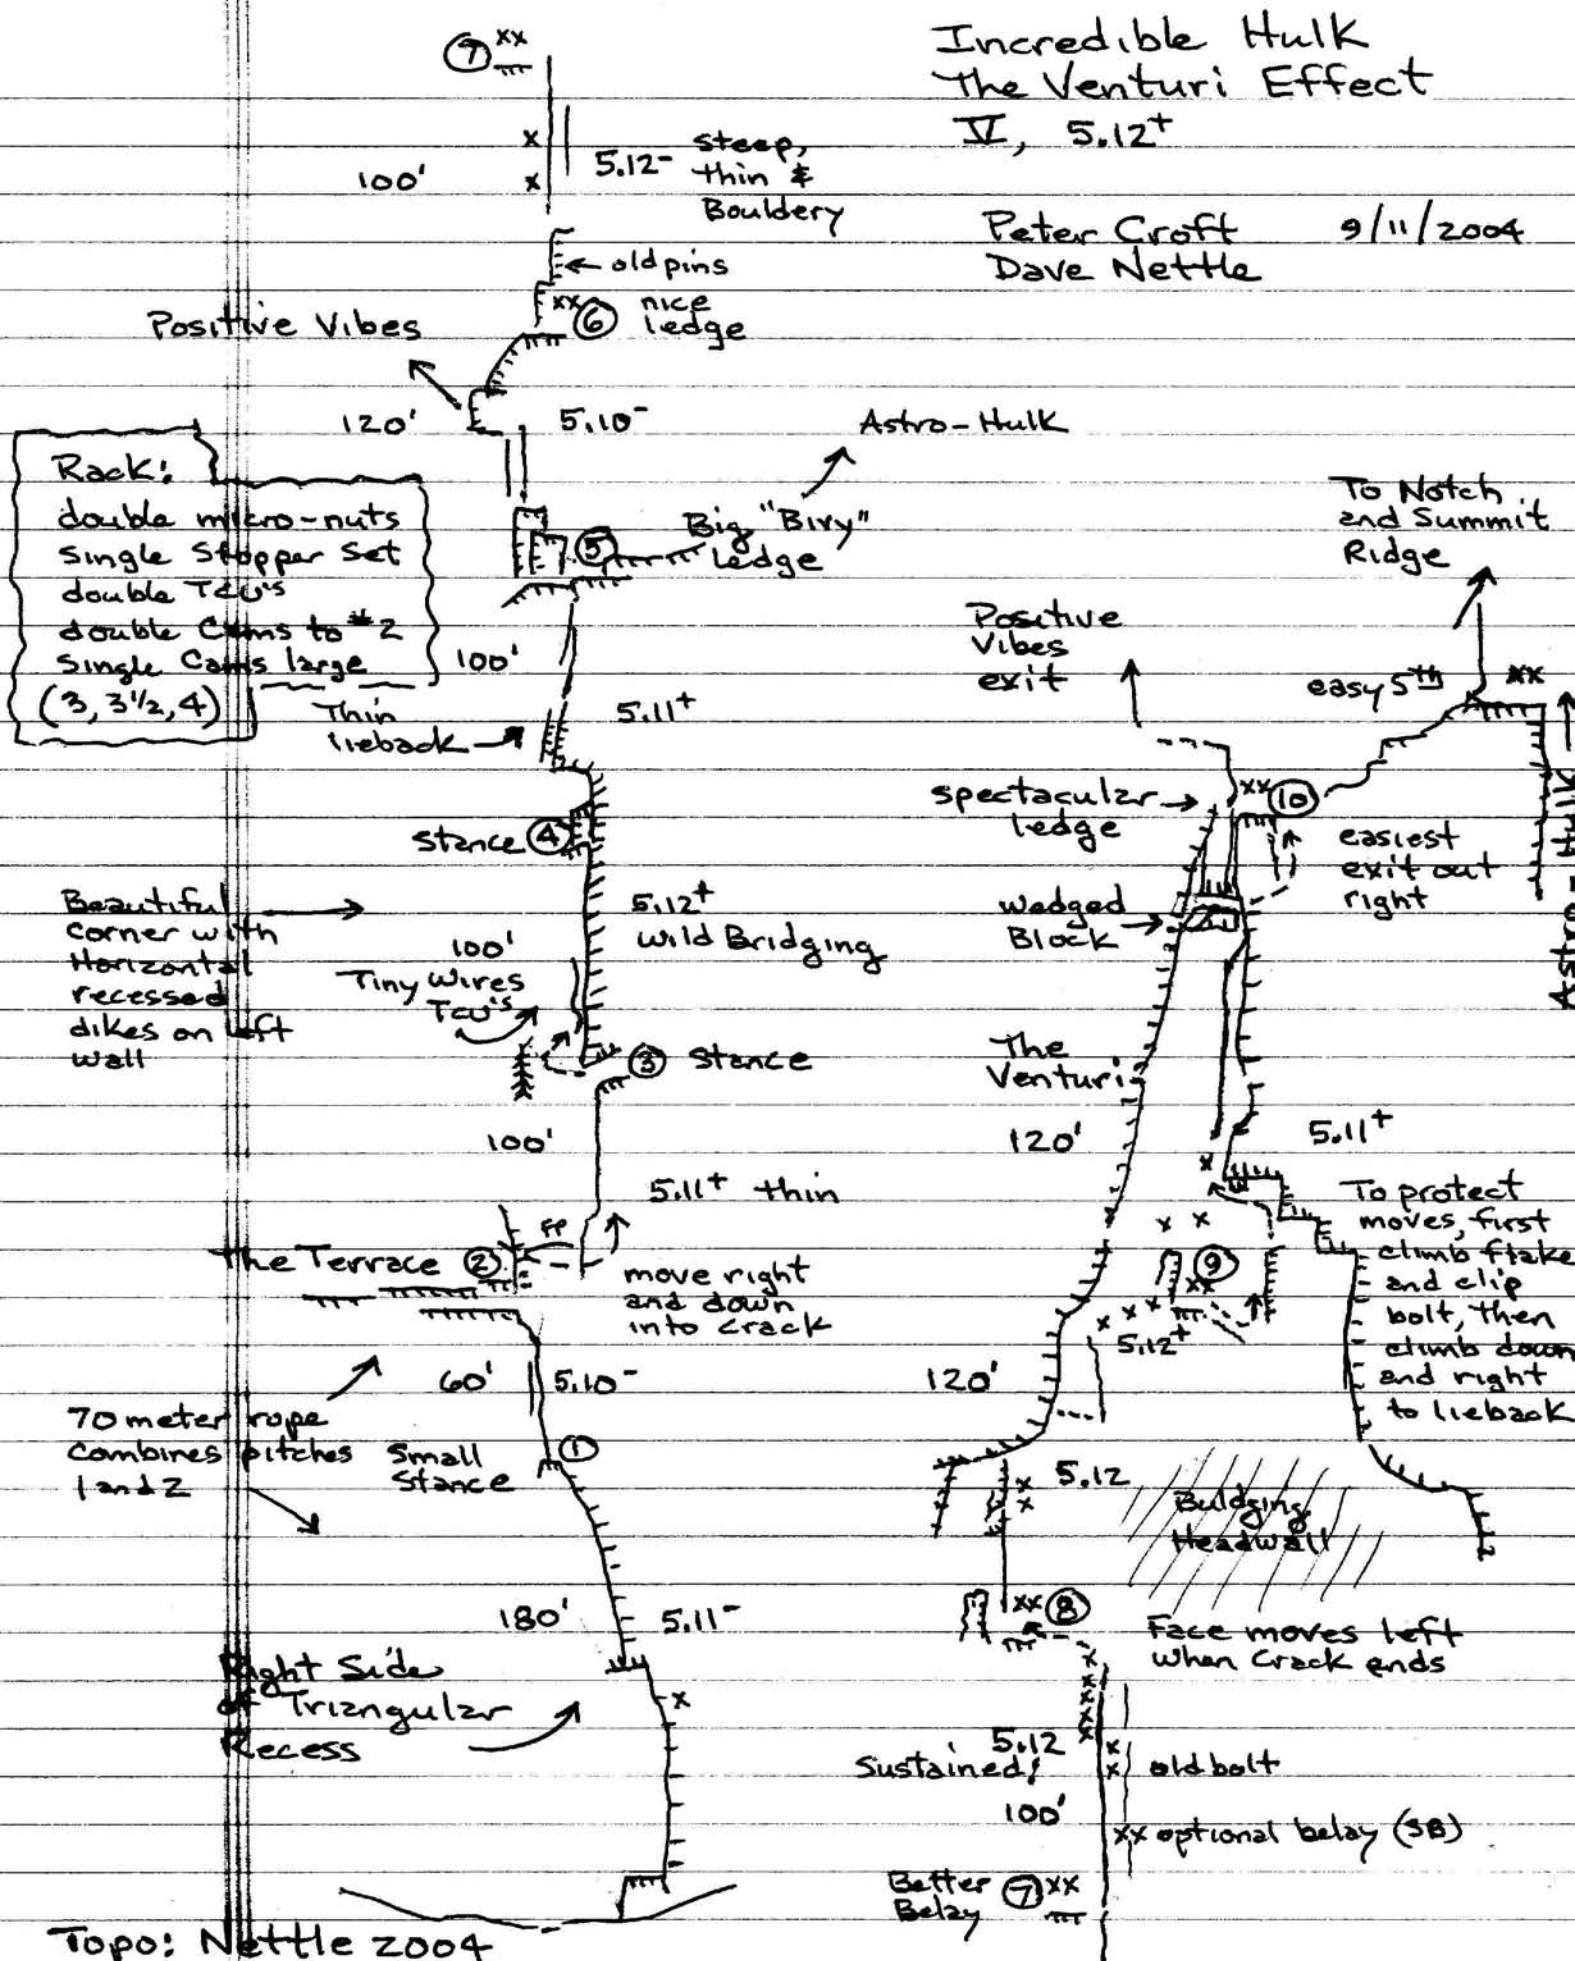 Incredible Hulk
The Venturi Effect
V, 5.12+
Peter Croft 9/11/2004
Dave Nettle
7 xx
100'
5.12-
steep,
thin &
Bouldery
old pins
xx 6 nice
ledge
Positive Vibes
120'
5.10-
Astro-Hulk
Rack:
double micro-nuts
single Stopper Set
double TCU's
double Cams to #2
Single Cams large
(3, 3 1/2, 4)
5
Big "Bivy"
ledge
100'
Thin
lieback
5.11+
stance 4
Beautiful
corner with
Horizontal
recessed
dikes on left
wall
5.12+
Wild Bridging
100'
Tiny Wires
TCU's
3 Stance
100'
5.11+ thin
FP
The Terrace 2
move right
and down
into crack
60'
5.10-
70 meter rope
combines pitches
1 and 2
Small
Stance
1
180'
5.11-
Right Side
of Triangular
Recess
x
Topo: Nettle 2004
To Notch
and Summit
Ridge
Positive
Vibes
exit
easy 5th
xx
Astro-Hulk
spectacular
ledge
xx 10
easiest
exit out
right
wedged
Block
The
Venturi
120'
5.11+
To protect
moves, first
climb flake
and clip
bolt, then
climb down
and right
to lieback
9
xx
5.12+
120'
5.12
Buldging
Headwall
xx 8
Face moves left
when crack ends
5.12
Sustained!
old bolt
100'
xx optional belay (SB)
Better
Belay
7 xx